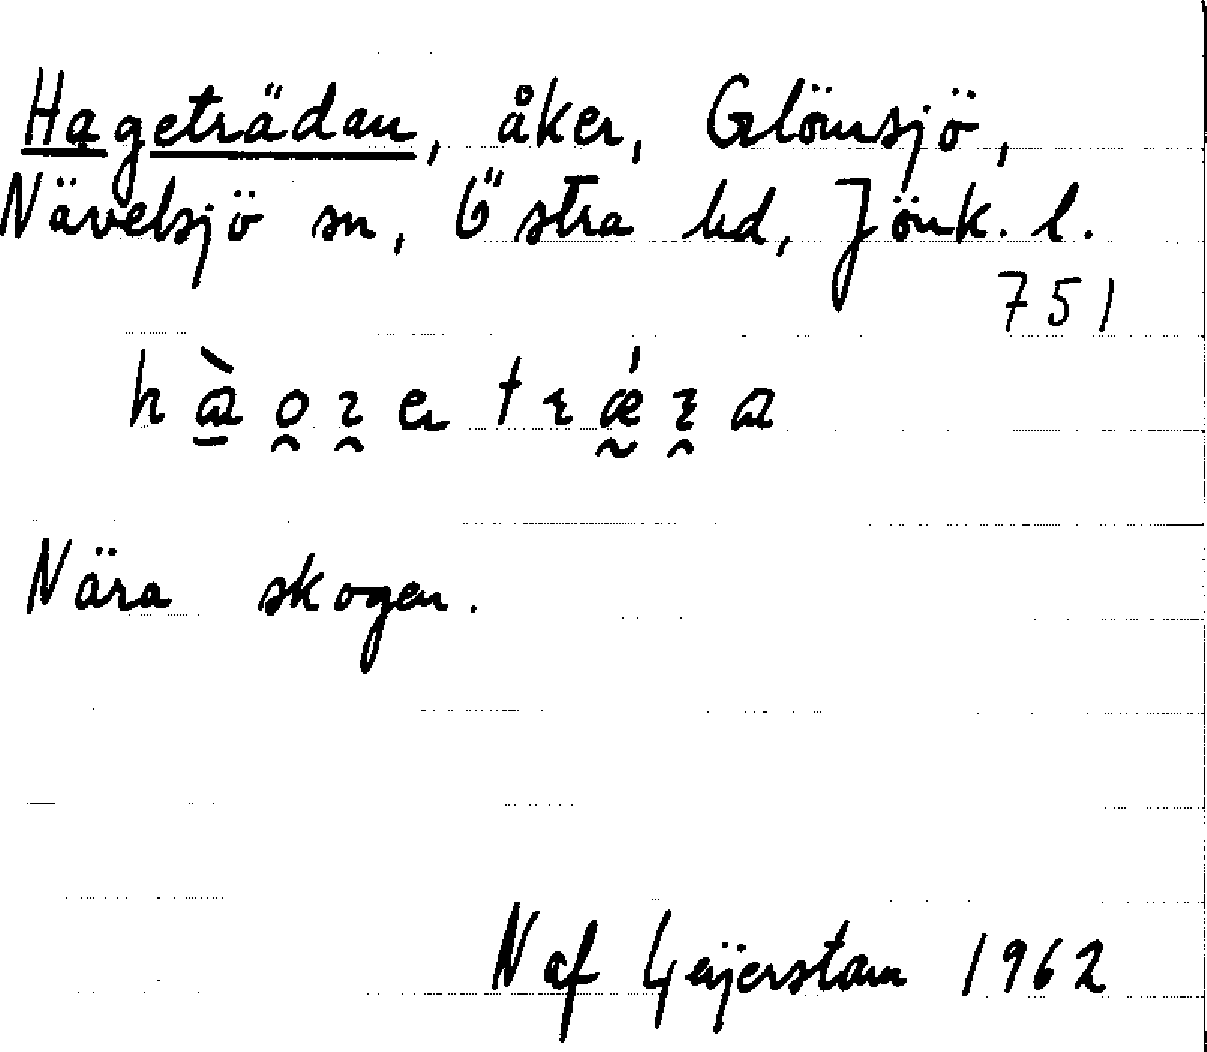 Hageträdan, åker, Glömsjö,
Nävelsjö sn, Östra hd, Jönk. l.
751
Nära skogen.
N af Geijerstam 1962